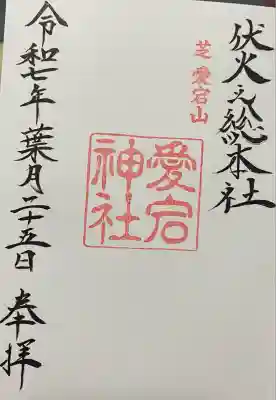 伏火之総本社
芝 愛宕山
愛宕
神社
令和七年葉月二十五日 奉拝